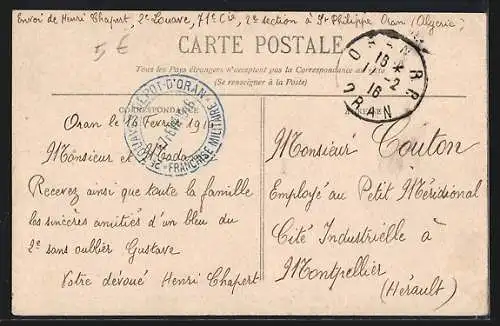 Envoi de Henri Chapert, 2e Zouave, 71e Cie, 2e section à St Philippe Oran (Algérie)
5 €
CARTE POSTALE
Tous les Pays étrangers n'acceptent pas la Correspondance au recto
(Se renseigner à la Poste)
CORRESPONDANCE
ADRESSE
2e ZOUAVES DÉPOT D'ORAN
FRANCHISE MILITAIRE
ORAN
16 *
-2
16
Oran le 16 Février 1916
Monsieur et Madame
Recevez ainsi que toute la famille
les sincères amitiés d'un bleu du
2e sans oublier Gustave
Votre dévoué Henri Chapert
Monsieur Couton
Employé au Petit Méridional
Cité Industrielle à
Montpellier
(Hérault)